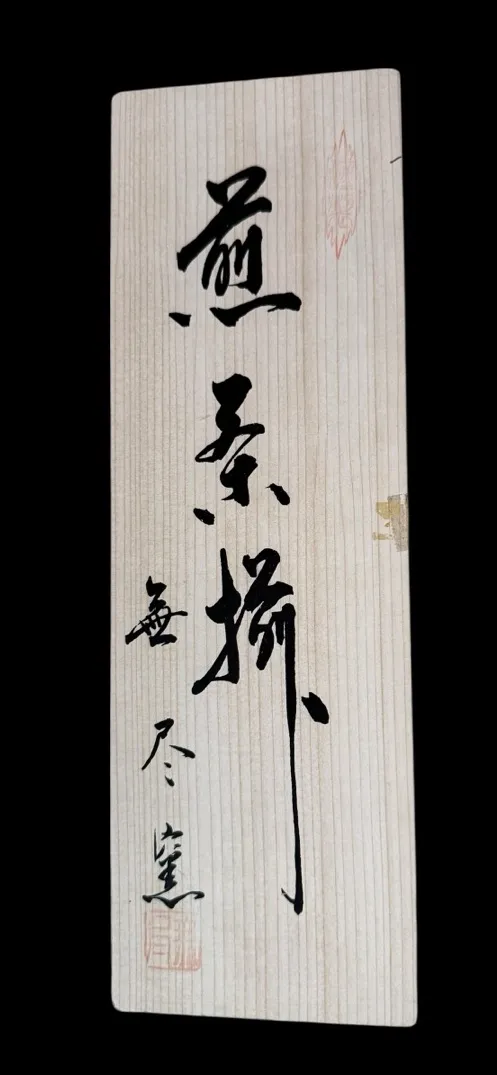 煎茶揃
無尽窯